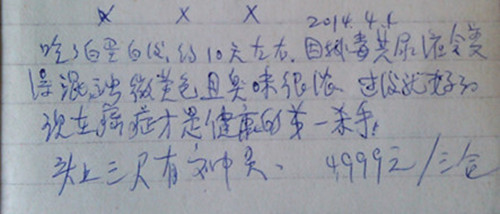 x x x 2014.4.1
吃了白蛋白后,约10天左右,因排毒其尿液会变
浑混浊微黄色且臭味很浓 过后就好的
现在癌症才是健康的第一杀手。
头上三尺有神灵、 4999元/三仓